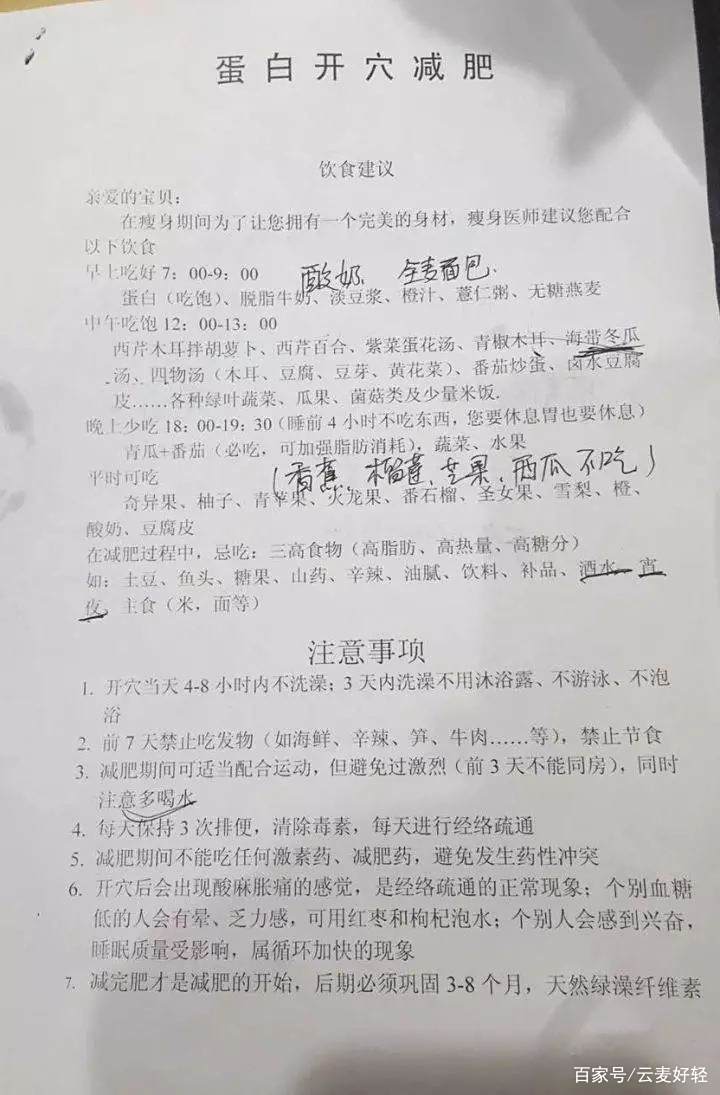 蛋白开穴减肥
饮食建议
亲爱的宝贝：
在瘦身期间为了让您拥有一个完美的身材，瘦身医师建议您配合
以下饮食
早上吃好 7：00-9：00 酸奶、全麦面包.
蛋白（吃饱）、脱脂牛奶、淡豆浆、橙汁、薏仁粥、无糖燕麦
中午吃饱 12：00-13：00
西芹木耳拌胡萝卜、西芹百合、紫菜蛋花汤、青椒木耳、海带冬瓜
汤、四物汤（木耳、豆腐、豆芽、黄花菜）、番茄炒蛋、卤水豆腐
皮……各种绿叶蔬菜、瓜果、菌菇类及少量米饭.
晚上少吃 18：00-19：30（睡前 4 小时不吃东西，您要休息胃也要休息）
青瓜+番茄（必吃，可加强脂肪消耗），蔬菜、水果
平时可吃 （香蕉、榴莲、芒果、西瓜不吃）
奇异果、柚子、青苹果、火龙果、番石榴、圣女果、雪梨、橙、
酸奶、豆腐皮
在减肥过程中，忌吃：三高食物（高脂肪、高热量、高糖分）
如：土豆、鱼头、糖果、山药、辛辣、油腻、饮料、补品、酒水、宵
夜，主食（米，面等）
注意事项
1. 开穴当天 4-8 小时内不洗澡；3 天内洗澡不用沐浴露、不游泳、不泡
浴
2. 前 7 天禁止吃发物（如海鲜、辛辣、笋、牛肉……等），禁止节食
3. 减肥期间可适当配合运动，但避免过激烈（前 3 天不能同房），同时
注意多喝水
4. 每天保持 3 次排便，清除毒素，每天进行经络疏通
5. 减肥期间不能吃任何激素药、减肥药，避免发生药性冲突
6. 开穴后会出现酸麻胀痛的感觉，是经络疏通的正常现象；个别血糖
低的人会有晕、乏力感，可用红枣和枸杞泡水；个别人会感到兴奋，
睡眠质量受影响，属循环加快的现象
7. 减完肥才是减肥的开始，后期必须巩固 3-8 个月，天然绿澡纤维素
百家号/云麦好轻